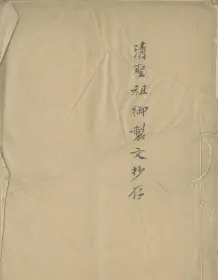 清聖祖御製文抄存